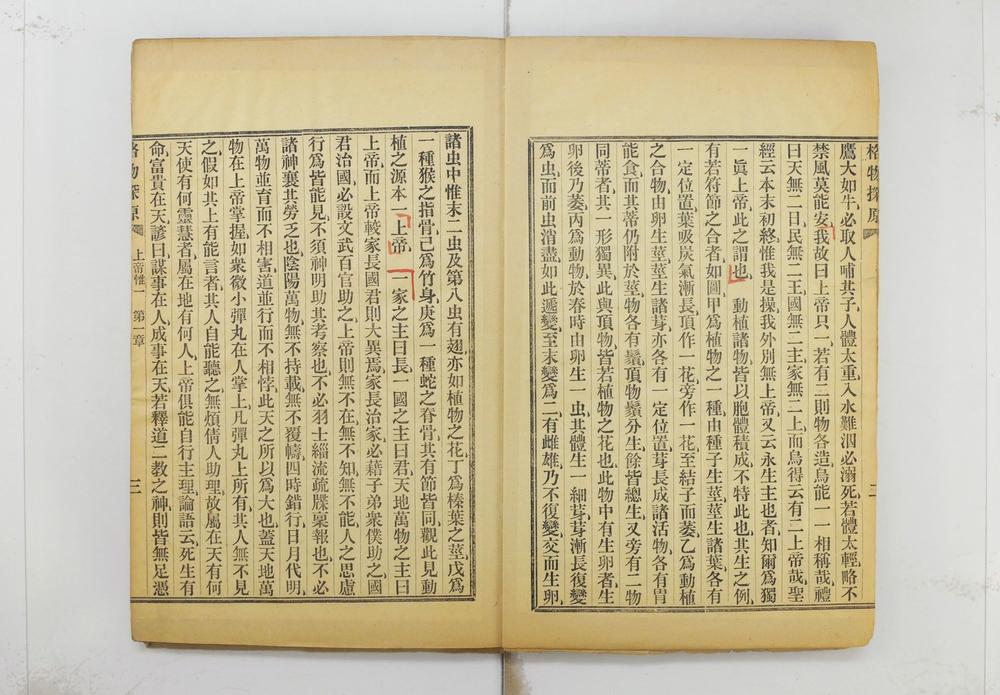 格物探原
二
鷹大如牛必取人哺其子人體太重入水難泅必溺死若體太輕略不
禁風莫能安我故曰上帝只一若有二則物各造烏能一一相稱哉禮
曰天無二日民無二王國無二主家無二上而烏得云有二上帝哉聖
經云本末初終惟我是操我外別無上帝又云永生主也者知爾爲獨
一眞上帝此之謂也 動植諸物皆以胞體積成不特此也其生之例
有若符節之合者如圖甲爲植物之一種由種子生莖莖生諸葉各有
一定位置葉吸炭氣漸長頂作一花旁作一花至結子而萎乙爲動植
之合物由卵生莖莖生諸芽亦各有一定位置芽長成諸活物各有胃
能食而其蒂仍附於莖物各有鬚頂物鬚分生餘皆總生又旁有二物
同蒂者其一形獨異此與頂物皆若植物之花也此物中有生卵者生
卵後乃萎丙爲動物於春時由卵生一虫其體生一細芽芽漸長復變
爲虫而前虫消盡如此遞變至末變爲二有雌雄乃不復變交而生卵
諸虫中惟末二虫及第八虫有翅亦如植物之花丁爲榛葉之莖戊爲
一種猴之指骨己爲竹身庚爲一種蛇之脊骨其有節皆同觀此見動
植之源本一上帝 一家之主曰長一國之主曰君天地萬物之主曰
上帝而上帝較家長國君則大異焉家長治家必藉子弟衆僕助之國
君治國必設文武百官助之上帝則無不在無不知無不能人之思慮
行爲皆能見不須神明助其考察也不必羽士緇流疏牒稟報也不必
諸神襄其勞乏也陰陽萬物無不持載無不覆幬四時錯行日月代明
萬物並育而不相害道並行而不相悖此天之所以爲大也蓋天地萬
物在上帝掌握如衆微小彈丸在人掌上凡彈丸上所有其人無不見
之假如其上有能言者其人自能聽之無煩倩人助理故屬在天有何
天使有何靈慧者屬在地有何人上帝俱能自行主理論語云死生有
命富貴在天諺曰謀事在人成事在天若釋道二教之神則皆無足憑
格物探原 上帝惟一 第一章
三